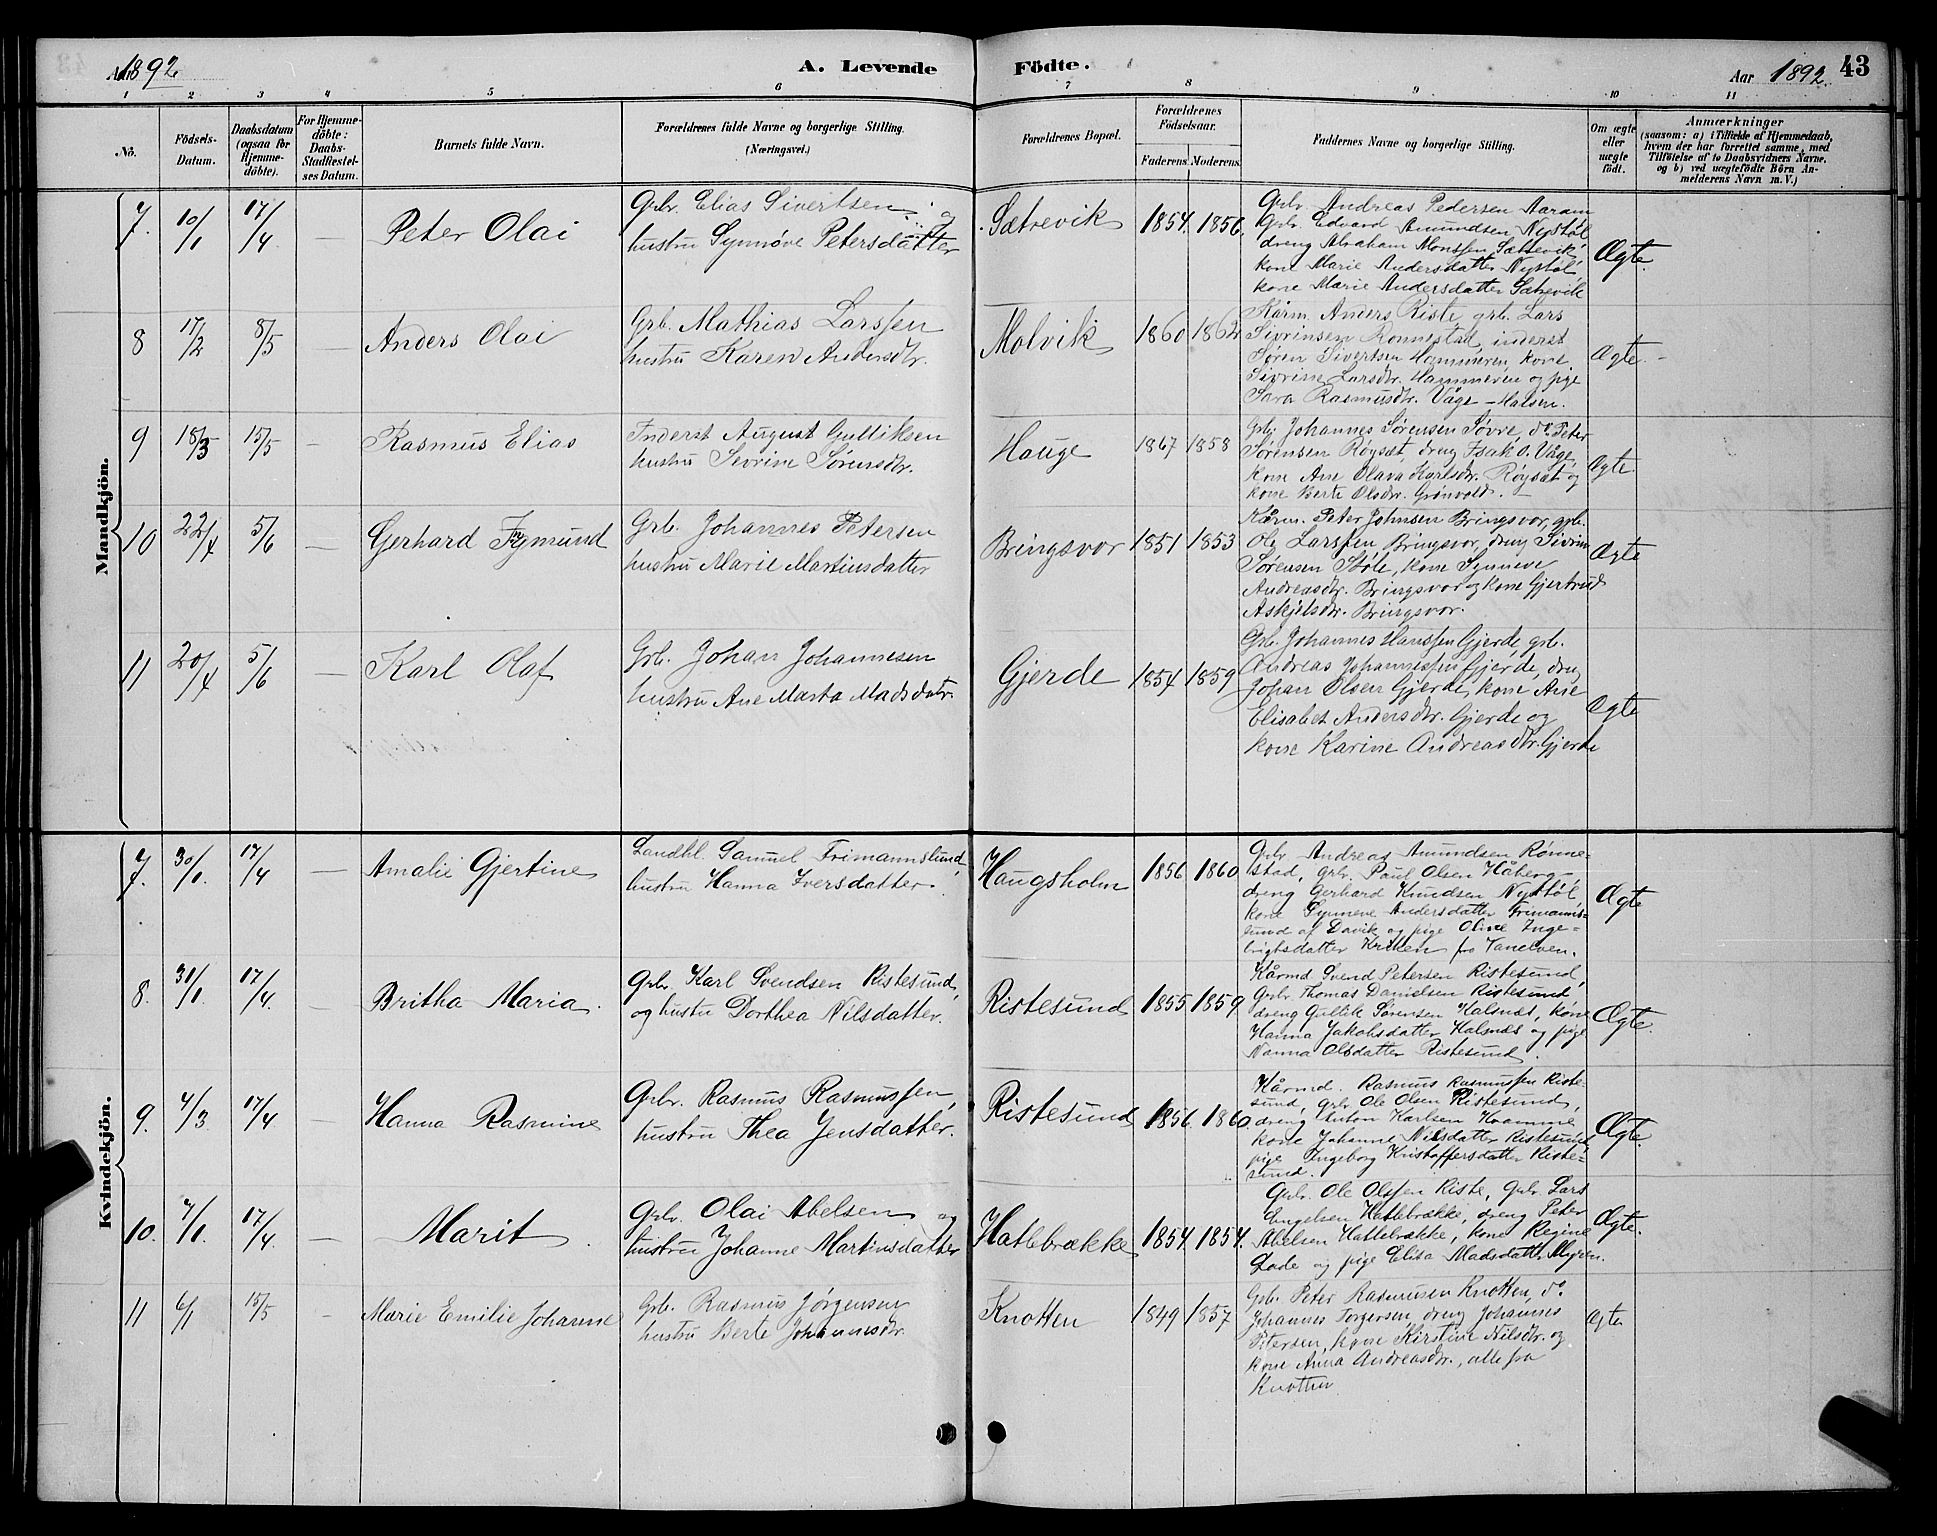 Aar 1892.
A. Levende
Födte.
Aar 1892.
43
1 2 3 4 5 6 7 8 9 10 11
No.
Födsels-Datum.
Daabsdatum (ogsaa for Hjemme-döbte).
For Hjemme-döbte: Daabs-Stadfæstel-ses Datum.
Barnets fulde Navn.
Forældrenes fulde Navne og borgerlige Stilling.
(Næringsvei.)
Forældrenes Bopæl.
Forældrenes Födselsaar.
Faderens. Moderens.
Faddernes Navne og borgerlige Stilling.
Om ægte eller uægte födt.
Anmærkninger
(saasom: a) i Tilfælde af Hjemmedaab, hvem der har forrettet samme, med Tilföielse af to Daabsvidners Navne, og b) ved uægtefödte Börn An-melderens Navn m. V.)
Mandkjön.
7. 10/1 17/4 — Peter Olai
Grbr. Elias Sivertsen og
hustru Synnøve Petersdatter
Sætrevik 1854. 1856.
Grbr. Andreas Pedersen Aaram
Grbr. Edvard Amundsen Nystøl
dreng Abraham Monssen Sætrevik,
kone Marie Andersdatter Nystøl,
kone Marie Andersdatter Sætrevik
Ægte.
8 17/2 8/5 — Anders Olai
Grb. Mathias Larssen
hustru Karen Andersdtr.
Molvik 1860 1862
Kårm. Anders Riste, grb. Lars
Sivrinsen Rønnestad, inderst
Søren Sivertsen Hammeren, kone
Sivrine Larsdtr. Hammeren og pige
Sara Rasmusdtr. Våge
Ægte.
9 18/3 15/5 — Rasmus Elias
Inderst August Gulliksen
hustru Sevrine Sørensdtr.
Hauge 1867 1858
Grb. Johannes Sørensen Søvre, do Peter
Sørensen Røysæt, dreng Isak O. Våge,
kone Ane Olava Karlsdtr. Røysæt og
kone Berte Olsdtr. Grønvold.
Ægte
10 22/4 5/6 — Gerhard Ingmund
Grb. Johannes Petersen
hustru Marie Martinsdatter
Bringsvor 1851 1853
Kårm. Peter Johnsen Bringsvor, grb.
Ole Larssen Bringsvor, dreng Sivrin
Sørensen Støle, kone Synneve
Andreasdtr. Bringsvor og kone Gjertrud
Askjelsdtr. Bringsvor.
Ægte
11 20/4 5/6 — Karl Olaf
Grb. Johan Johannesen
hustru Ane Marta Madsdatr.
Gjerde 1854 1859
Grb. Johannes Hanssen Gjerde, grb.
Andreas Johannessen Gjerde, dreng
Johan Olsen Gjerde, kone Ane
Elisabet Andersdtr. Gjerde og
kone Karine Andreasdtr. Gjerde
Ægte
Kvindekjön.
7. 30/1. 17/4 — Amalie Gjertine
Landhl. Samuel Frimannslund,
hustru Hanna Iversdatter.
Haugsholm 1856 1860
Grbr. Andreas Amundsen Rønne-
stad, Grbr. Paul Olsen Håberg
dreng Gerhard Knudsen Nystøl,
kone Synneve Andersdatter Frimanns-
lund af Davik og pige Oline Inge-
brigtsdatter
Ægte
8. 31/1. 17/4. — Britha Maria.
Grbr. Karl Svendsen Ristesund,
og hustru Dorthea Nilsdatter.
Ristesund 1855 1859.
Kårmd Svend Petersen Ristesund,
Grbr. Thomas Danielsen Ristesund
dreng Gullik Sørensen Halsnæs, kone
Hanna Jakobsdatter Halsnæs og pige
Nanna Olsdatter Ristesund.
Ægte.
9. 4/3. 17/4 — Hanna Rasmine
Grbr. Rasmus Rasmussen,
hustru Thea Jensdatter.
Ristesund 1856. 1860.
Kårmd. Rasmus Rasmussen Riste-
sund, Grbr. Ole Olsen Ristesund,
dreng Anton Karlsen Kvamme
kone Johanne Nilsdatter Ristesund,
pige Ingeborg Kristoffersdatter Riste-
sund.
Ægte.
10. 7/1. 17/4. — Marit
Grbr. Olai Abelsen og
hustru Johanne Martinsdatter
Hatlebrække 1854. 1854.
Grbr. Ole Olssen Riste, Grbr. Lars
Engelsen Hatlebrække, dreng Peter
Abelsen Hatlebrække, kone Regine
Lade og pige Elisa Madsdatter Myren.
Ægte.
11 6/1 15/5 — Marie Emilie Johanne
Grb. Rasmus Jørgensen
hustru Berte Johannesdtr.
Knotten 1849 1857
Grb. Peter Rasmussen Knotten, do
Johannes Torgersen, dreng Johannes
Petersen, kone Kirstine Nilsdtr. og
kone Anna Andreasdtr., alle fra
Knotten
Ægte